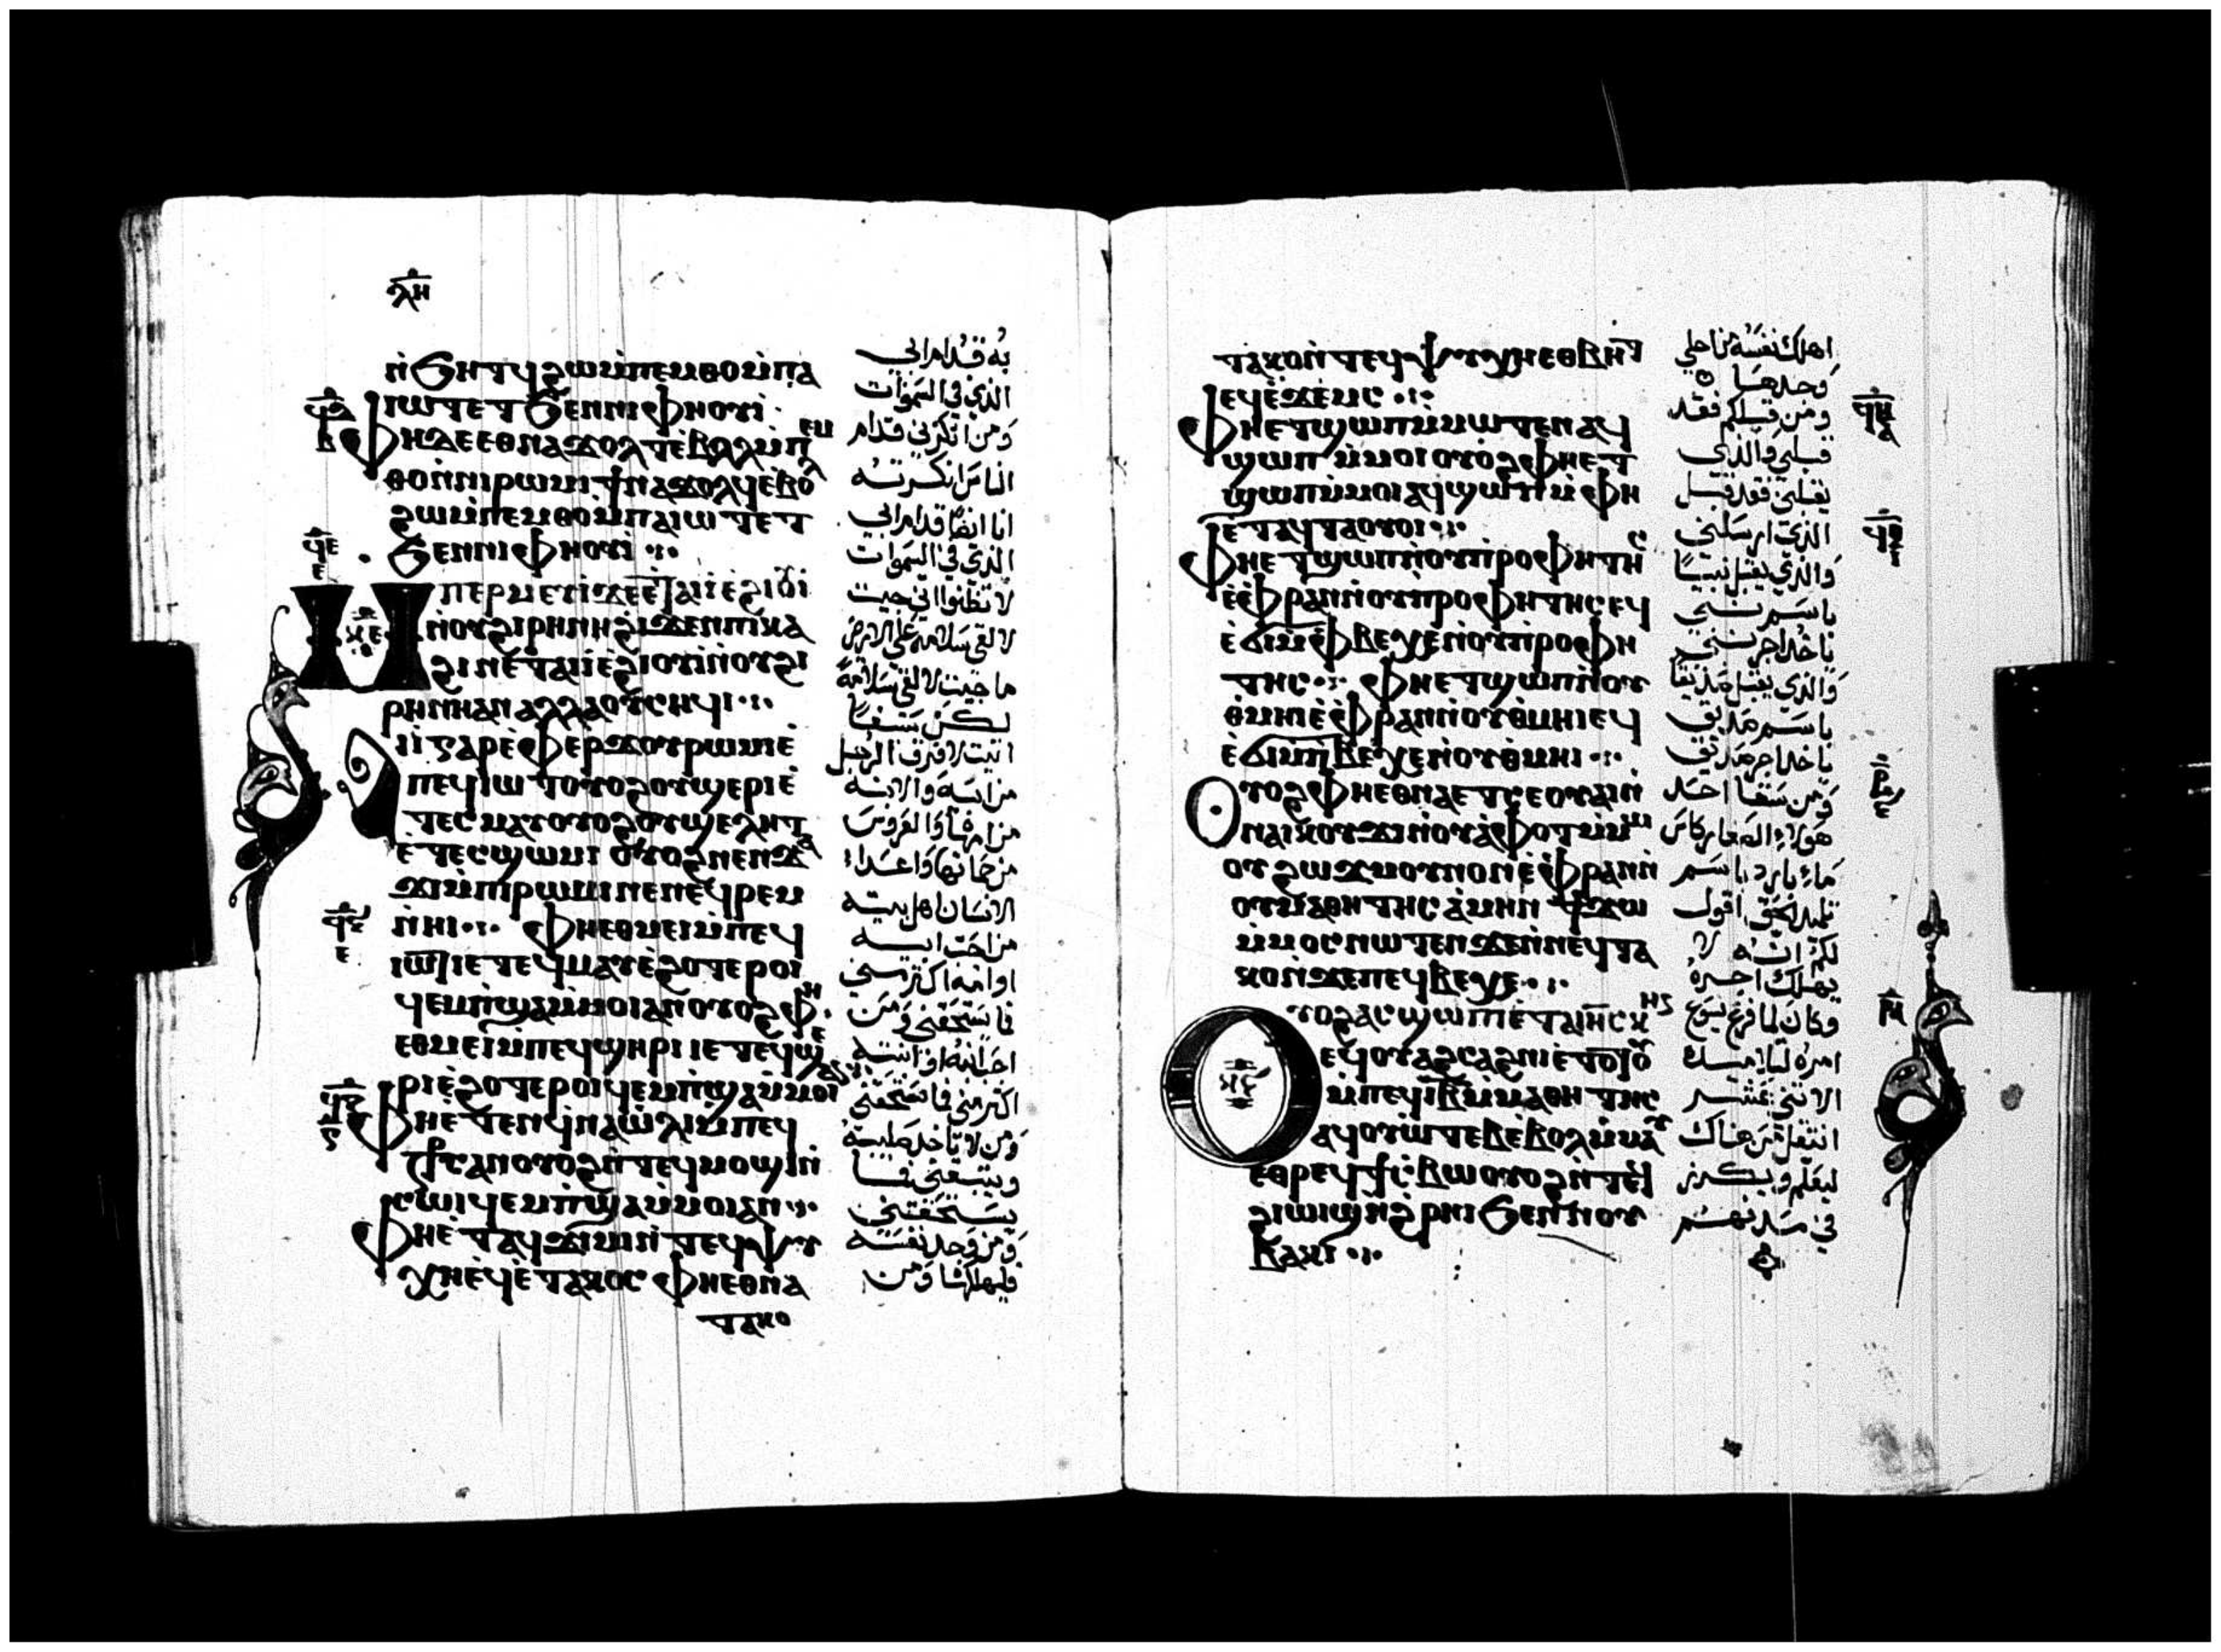 ⲗⲏ
ⲛ̀ϧⲏⲧϥ ϩⲱ ⲙ̀ⲡⲉⲙⲑⲟ ⲙ̀ⲡⲁ
ⲓⲱⲧ ⲉⲧϧⲉⲛⲛⲓⲫⲏⲟⲩⲓ·
ⲫⲏ ⲇⲉ ⲉⲑⲛⲁϫⲟⲗⲧ ⲉ̀ⲃⲟⲗ ⲙ̀ⲡⲉⲙ
ⲑⲟ ⲛ̀ⲛⲓⲣⲱⲙⲓ ϯⲛⲁϫⲟⲗϥ ⲉⲃⲟⲗ
ϩⲱ ⲙ̀ⲡⲉⲙⲑⲟ ⲙ̀ⲡⲁⲓⲱⲧ ⲉⲧ
ϧⲉⲛⲛⲓⲫⲏⲟⲩⲓ
ⲙⲡⲉⲣⲙⲉⲩⲓ ϫⲉ ⲉ̀ⲧⲁⲓⲓ̀ ⲉ̀ϩⲓⲟⲩⲓ
ⲛ̀ⲟⲩϩⲓⲣⲏⲛⲏ ϩⲓϫⲉⲛ ⲡⲓⲕⲁ
ϩⲓ ⲛⲉ̀ⲧⲁⲓⲓ̀ ⲉ̀ϩⲓⲟⲩⲓ ⲛ̀ⲟⲩϩⲓ
ⲣⲏⲛⲏ ⲁⲛ ⲁⲗⲗⲁ ⲟⲩⲥⲏϥⲓ
ⲁⲓⲓ̀ ⲅⲁⲣ ⲉ̀ⲫⲉⲣϫ ⲟⲩⲣⲱⲙⲓ ⲉ̀
ⲡⲉϥⲓⲱⲧ ⲟⲩⲟϩ ⲟⲩϣⲉⲣⲓ ⲉ̀
ⲧⲉⲥⲙⲁⲩ ⲟⲩⲟϩ ⲟⲩϣⲉⲗⲏⲧ
ⲉ̀ⲧⲉⲥϣⲱⲙⲓ ⲟⲩⲟϩ ⲛⲉⲛϫⲁ
ϫⲓ ⲙ̀ⲡⲓⲣⲱⲙⲓ ⲛⲉ ⲛⲉϥⲣⲉⲙ
ⲛ̀ⲏⲓ ⲫⲏⲉⲑⲙⲉⲓ ⲙ̀ⲡⲉϥ
ⲓⲱⲧ ⲓⲉ ⲧⲉϥⲙⲁⲩ ⲉ̀ϩⲟⲧⲉⲣⲟⲓ
ϥⲉⲙⲡ̀ϣⲁ ⲙ̀ⲙⲟⲓ ⲁⲛ ⲟⲩⲟϩ ⲫⲏ
ⲉⲑⲙⲉⲓ ⲙ̀ⲡⲉϥϣⲏⲣⲓ ⲓⲉ ⲧⲉϥϣⲉ
ⲣⲓ ⲉ̀ϩⲟⲧⲉⲣⲟⲓ ϥⲉⲙⲡ̀ϣⲁ ⲙ̀ⲙⲟⲓ ⲁⲛ
ⲫⲏⲉ̀ⲧⲉⲛϥ̀ⲛⲁⲱ̀ⲗⲓ ⲙ̀ⲡⲉϥ
ⲥⲧⲁⲩⲣⲟⲥ ⲁⲛ ⲟⲩⲟϩ ⲛ̀ⲧⲉϥⲙⲟϣⲓ ⲛ̀
ⲥⲱⲓ ϥⲉⲙⲡ̀ϣⲁ ⲙ̀ⲙⲟⲓ ⲁⲛ
ⲫⲏⲉ̀ⲧⲁϥϫⲓⲙⲓ ⲛ̀ⲧⲉϥⲯⲩ
ⲭⲏ ⲉϥⲉ̀ⲧⲁⲕⲟⲥ ⲫⲏⲉⲑⲛⲁ
ⲧⲁⲕⲟ
به قدام ابي
الذي في السموات
ومن انكرني قدام
الناس انكرته
انا ايضا قدام ابي
الذي في السموات
لا تظنوا اني جيت
لالقي سلامه علي الارض
ما جيت لالقي سلامة
لكن سيفا
اتيت لافرق الرجل
من ابيه والابنه
من امها والعروس
من حماتها واعداء
الانسان اهل بيته
من احب ابيه
او امه اكثر مني
فما يستحقني ومن
احب ابنه او ابنته
اكثر مني فما يستحقني
ومن لا ياخد صليبه
ويتبعني فما
يستحقني
ومن وجد نفسه
فليهلكها ومن
ⲧⲁⲕⲟ ⲛ̀ⲧⲉϥⲯⲩⲭⲏ ⲉⲑⲃⲏⲧ
ⲉϥⲉ̀ϫⲉⲙⲥ
ⲫⲏⲉⲧϣⲱⲡ ⲙ̀ⲙⲱⲧⲉⲛ ⲁϥ
ϣⲱⲡ ⲙ̀ⲙⲟⲓ ⲟⲩⲟϩ ⲫⲏⲉⲧ
ϣⲱⲡ ⲙ̀ⲙⲟⲓ ⲁϥϣⲱⲡ ⲙ̀ⲫⲏ
ⲉ̀ⲧⲁϥⲧⲁⲟⲩⲟⲓ
ⲫⲏⲉⲧϣⲱⲡ ⲛ̀ⲟⲩⲡ̀ⲣⲟⲫⲏⲧⲏⲥ
ⲉ̀ⲫ̀ⲣⲁⲛ ⲛ̀ⲟⲩⲡ̀ⲣⲟⲫⲏⲧⲏⲥ ⲉϥ
ⲉ̀ϭⲓ ⲙ̀ⲫ̀ⲃⲉⲭⲉ ⲛ̀ⲟⲩⲡ̀ⲣⲟⲫⲏ
ⲧⲏⲥ ⲫⲏⲉⲧϣⲱⲡ ⲛ̀ⲟⲩ
ⲑ̀ⲙⲏⲓ ⲉ̀ⲫ̀ⲣⲁⲛ ⲛ̀ⲟⲩⲑ̀ⲙⲏⲓ ⲉϥ
ⲉ̀ϭⲓ ⲙ̀ⲡ̀ⲃⲉⲭⲉ ⲛ̀ⲟⲩⲑ̀ⲙⲏⲓ
ⲟⲩⲟϩ ⲫⲏⲉⲑⲛⲁⲧⲥⲉ ⲟⲩⲁⲓ ⲛ̀
ⲛⲁⲓⲕⲟⲩϫⲓ ⲛ̀ⲟⲩⲁ̀ⲫⲟⲧ ⲙ̀ⲙⲱ
ⲟⲩ ϩⲱϫ ⲙⲟⲛⲟⲛ ⲉ̀ⲫ̀ⲣⲁⲛ ⲛ̀
ⲟⲩⲙⲁⲑⲏⲧⲏⲥ ⲁ̀ⲙⲏⲛ ϯϫⲱ
ⲙ̀ⲙⲟⲥ ⲛⲱⲧⲉⲛ ϫⲉⲛ̀ⲛⲉϥⲧⲁ
ⲕⲟ ⲛ̀ϫⲉ ⲡⲉϥⲃⲉⲭⲉ
ⲟⲩⲟϩ ⲁⲥϣⲱⲡⲓ ⲉ̀ⲧⲁ ⲓⲏⲥ ⲕⲏⲛ
ⲉϥⲟⲩⲁϩⲥⲁϩⲛⲓ ⲉ̀ⲧⲟⲧⲟⲩ
ⲙ̀ⲡⲉϥⲓⲃ ⲙ̀ⲙⲁⲑⲏⲧⲏⲥ
ⲁϥⲟⲩⲱⲧⲉⲃ ⲉ̀ⲃⲟⲗ ⲙ̀ⲙⲁⲩ
ⲉⲑⲣⲉϥϯⲥ̀ⲃⲱ ⲟⲩⲟϩ ⲛ̀ⲧⲉϥ
ϩⲓⲱⲓϣ ⲛ̀ϩ̀ⲣⲏⲓ ϧⲉⲛ ⲛⲟⲩ
ⲃⲁⲕⲓ
اهلك نفسه من اجلي
وجدها
ومن قبلكم فقد
قبلني والذي
يقبلني فقد قبل
الذي ارسلني
والذي يقبل نبيا
باسم نبي
ياخد اجر نبي
والذي يقبل صديقا
باسم صديق
ياخد اجر صديق
ومن سقا احد
هولاء الصغار كاس
ماء بارد باسم
تلميد الحق اقول
لكم انه لا
يهلك اجره
وكان لما فرغ يسوع
امره لتلاميده
الاثني عشر
انتقل من هناك
ليعلم ويكرز
في مدنهم